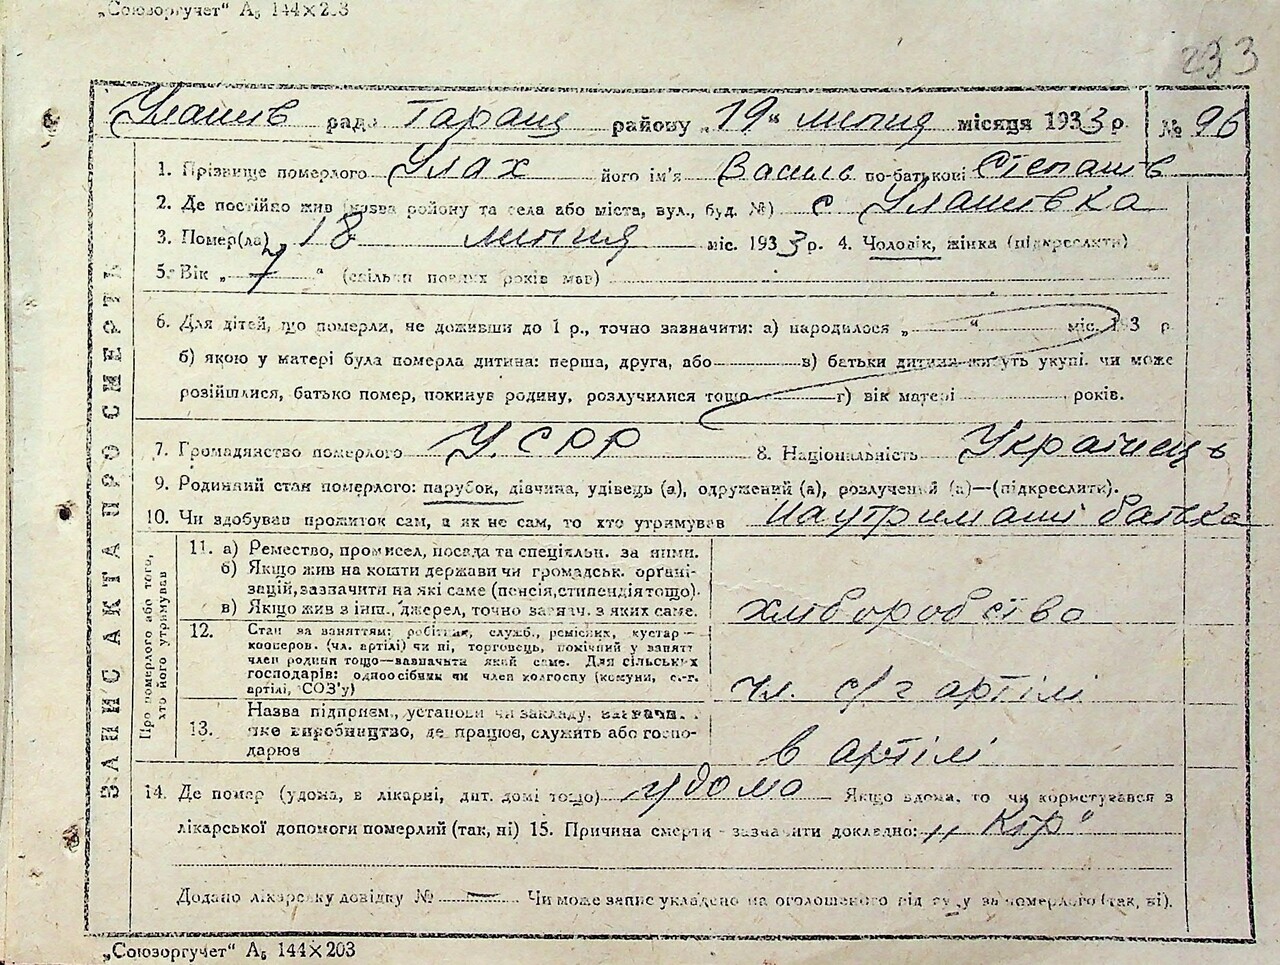 „Союзоргучет“ А₅ 144×203
233
Улашів рада Таращ району „19“ липня місяця 1933 р. № 96
1. Прізвище померлого Улах його ім'я Василь по-батькові Степанів
2. Де постійно жив (назва району та села або міста, вул., буд. №) с Улашівка
3. Помер(ла) 18 липня міс. 1933 р. 4. Чоловік, жінка (підкреслити)
5. Вік „ 7 “ (скільки повних років мав)
6. Для дітей, що померли, не доживши до 1 р., точно зазначити: а) народилося „ “ міс. 193 р.
б) якою у матері була померла дитина: перша, друга, або в) батьки дитини живуть укупі, чи може
розійшлися, батько помер, покинув родину, розлучилися тощо г) вік матері років.
7. Громадянство померлого У.СРР 8. Національність Українець
9. Родинний стан померлого: парубок, дівчина, удівець (а), одружений (а), розлучений (а)—(підкреслити).
10. Чи здобував прожиток сам, а як не сам, то хто утримував на утриманні батька
ЗАПИС АКТА ПРО СМЕРТЬ
Про померлого або того,
хто його утримував
11. а) Ремество, промисел, посада та спеціяльн. за ними.
б) Якщо жив на кошти держави чи громадськ. орґані-
зацій, зазначити на які саме (пенсія, стипендія тощо).
в) Якщо жив з інш. джерел, точно зазнач. з яких саме.
хліборобство
12. Стан за заняттям: робітник, служб., ремісник, кустар—
кооперов. (чл. артілі) чи ні, торговець, помічний у занятт
член родини тощо—зазначити який саме. Для сільських
господарів: одноосібник чи член колгоспу (комуни, с.-г.
артілі, СОЗ'у)
чл. с/г артілі
13. Назва підприєм., установи чи закладу, зазнач.
яке виробництво, де працює, служить або госпо-
дарює
в артілі
14. Де помер (удома, в лікарні, дит. домі тощо) удома Якщо вдома, то чи користувався з
лікарської допомоги померлий (так, ні) 15. Причина смерти - зазначити докладно: „Кір“
Додано лікарську довідку № Чи може запис укладено на оголошеного від суду за померлого (так, ні).
„Союзоргучет“ А₅ 144×203